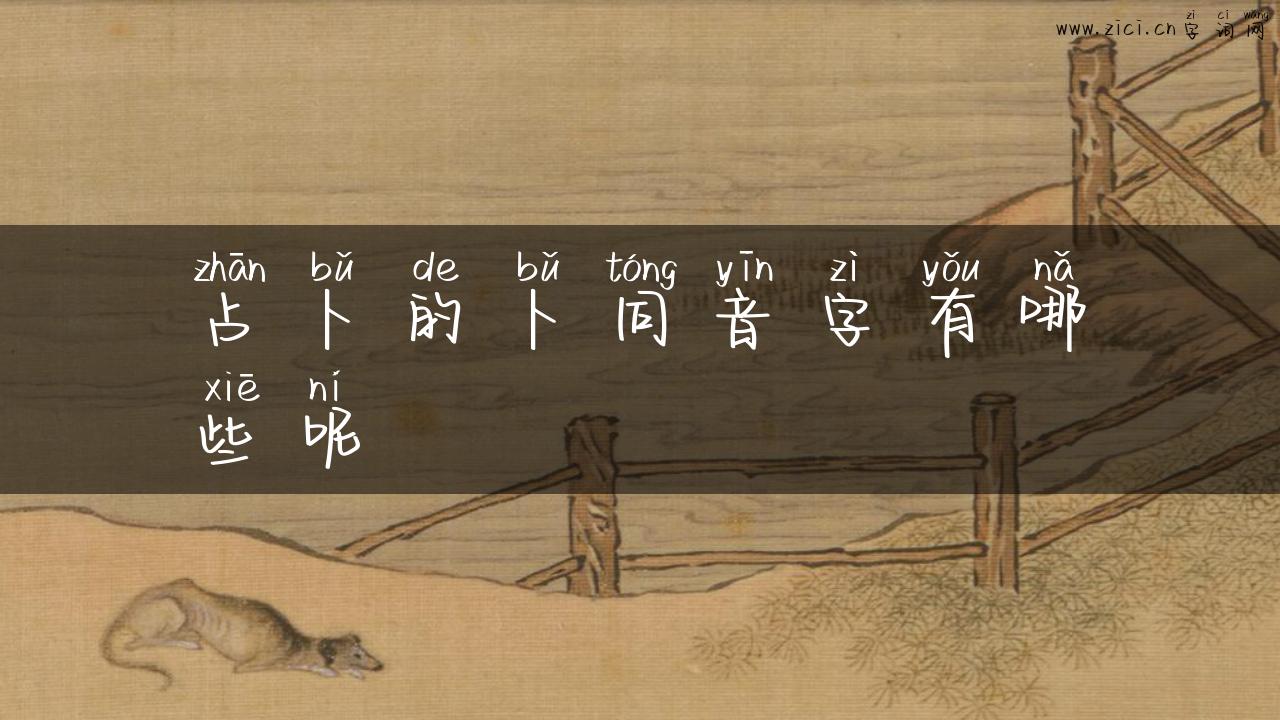 zì cí wǎng
www.zici.cn 字词网
zhān bǔ de bǔ tóng yīn zì yǒu nǎ
占卜的卜同音字有哪
xiē ní
些呢